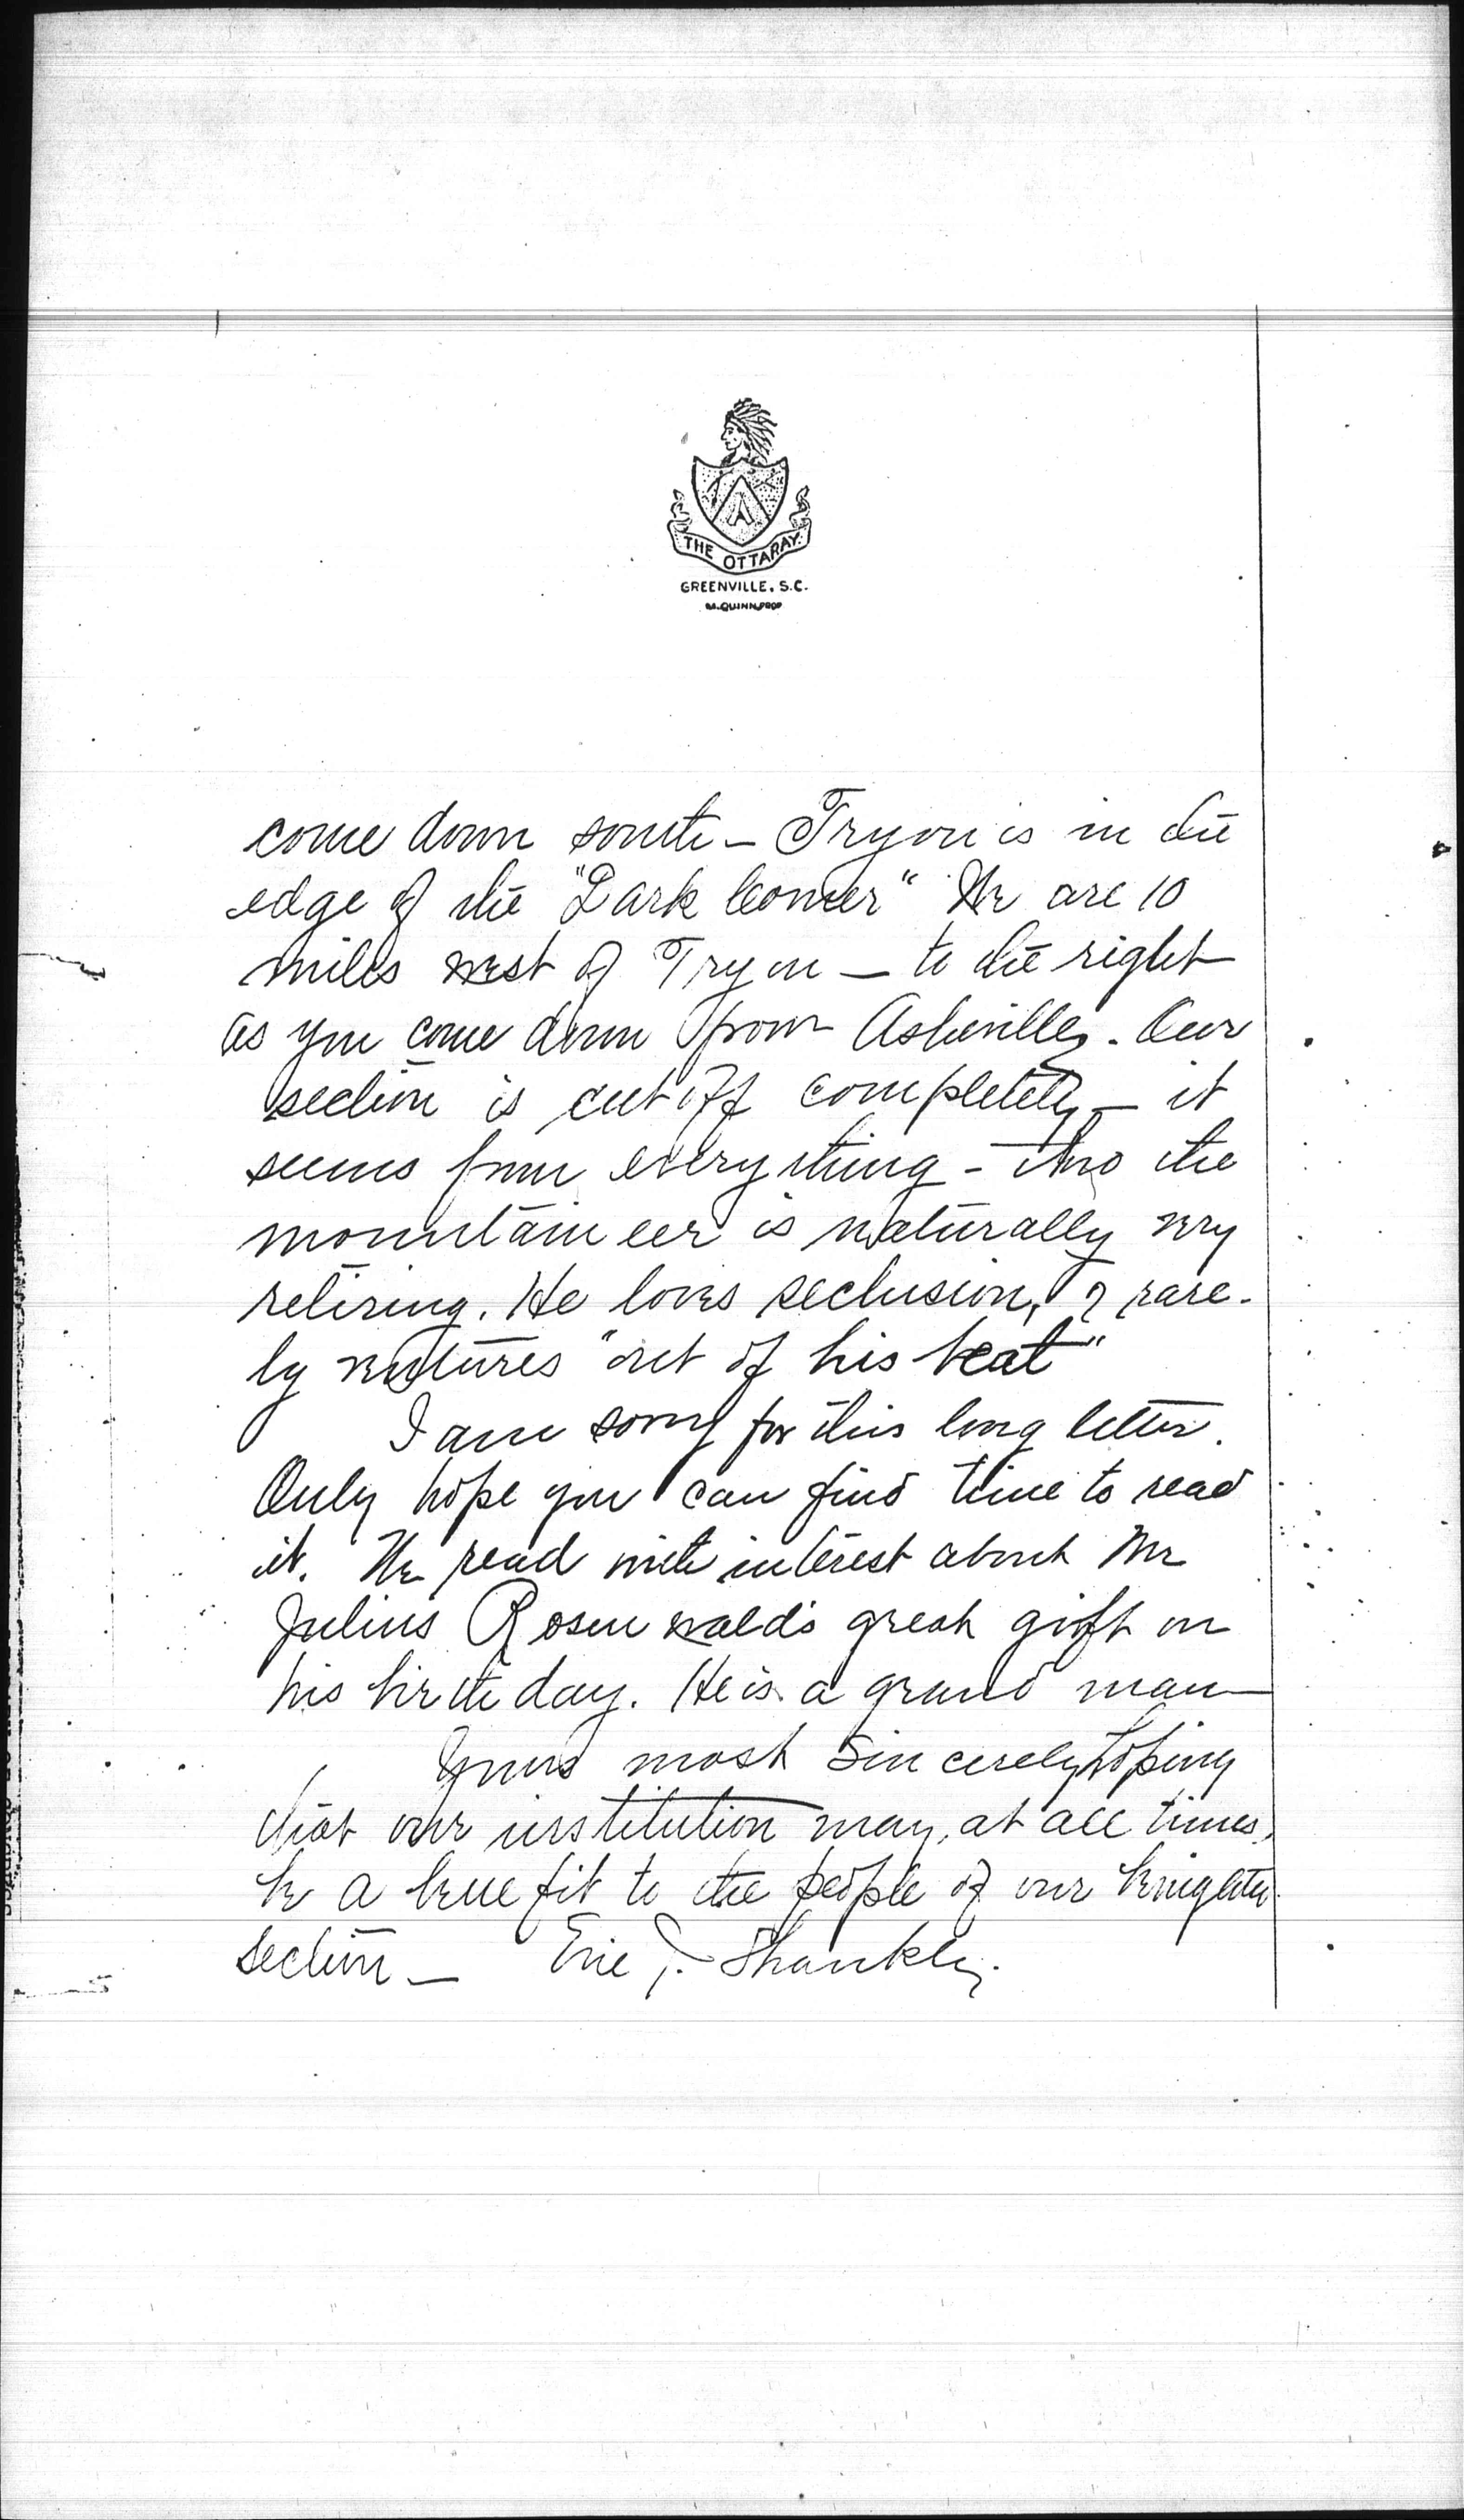 THE OTTARAY.
GREENVILLE, S.C.
M. QUINN, PROP
come down south — Tryon is in the
edge of the "Dark Corner" We are 10
miles west of Tryon — to the right
as you come down from Asheville. Our
section is cut off completely — it
seems from everything - tho the
mountaineer is naturally very
retiring. He loves seclusion, & rare-
ly ventures "out of his beat"
I am sorry for this long letter.
Only hope you can find time to read
it. We read with interest about Mr
Julius Rosenwald's great gift on
his birthday. He is a grand man
Yours most sincerely hoping
that our institution may, at all times,
be a benefit to the people of our benighted
section — J. Shankly.